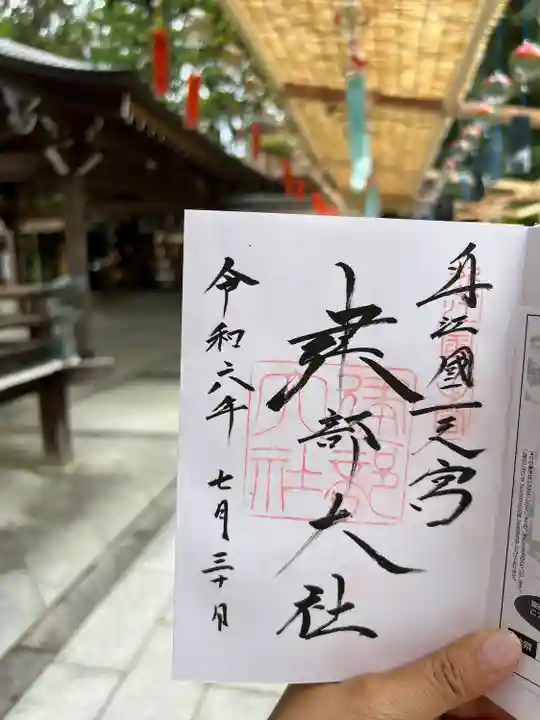 近江國一之宮
建部大社
令和六年 七月三十日
建部大社